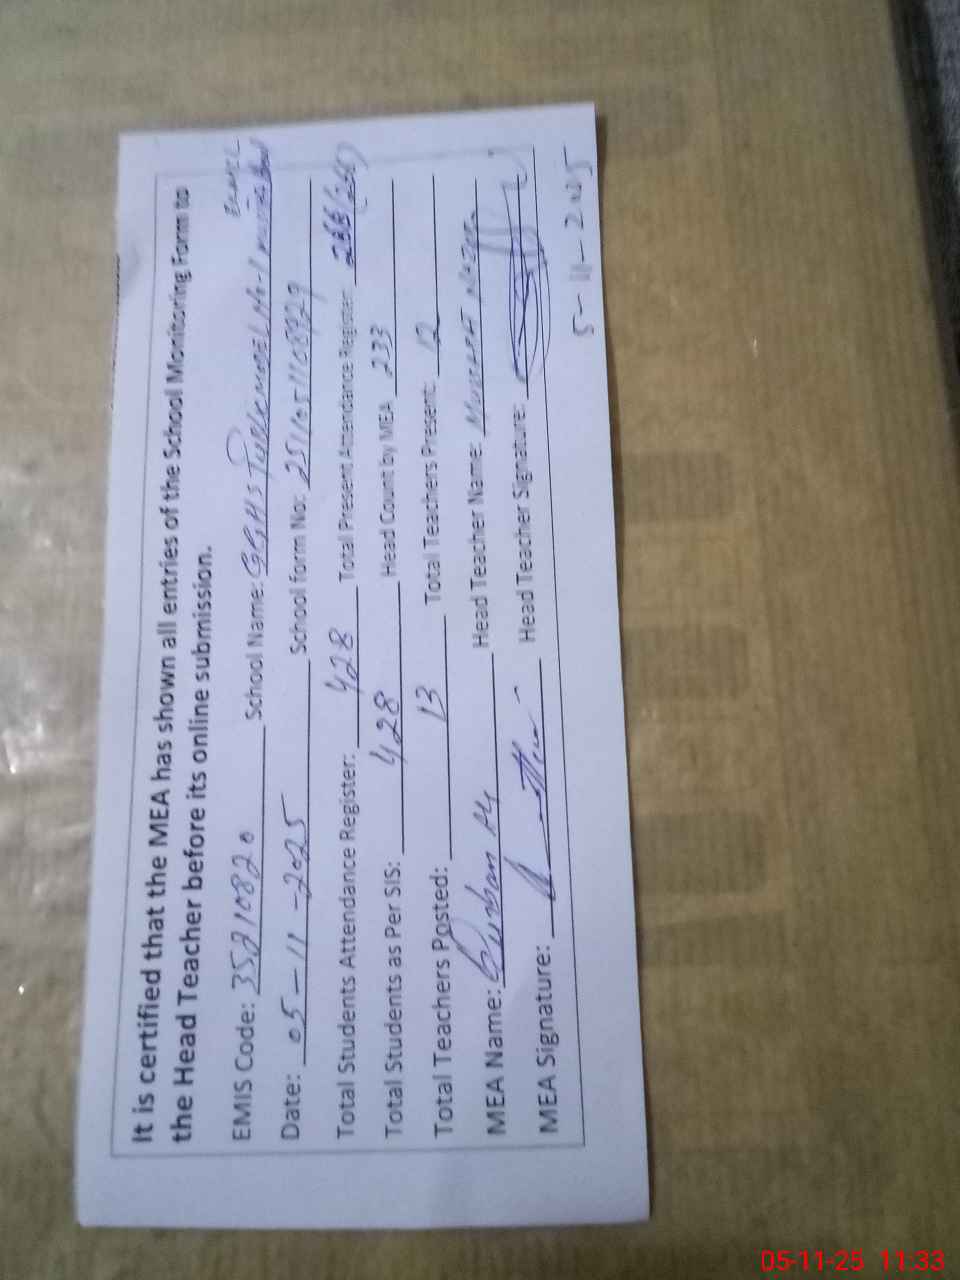 It is certified that the MEA has shown all entries of the School Monitoring Form to
the Head Teacher before its online submission.
EMIS Code: 35210820 School Name: GGHS
Date: 05-11-2025 School form No: 251105110829
Total Students Attendance Register: 428 Total Present Attendance Register:
Total Students as Per SIS: 428 Head Count by MEA 233
Total Teachers Posted: 13 Total Teachers Present: 12
MEA Name: Head Teacher Name:
MEA Signature: Head Teacher Signature:
5-11-2025
05-11-25 11:33